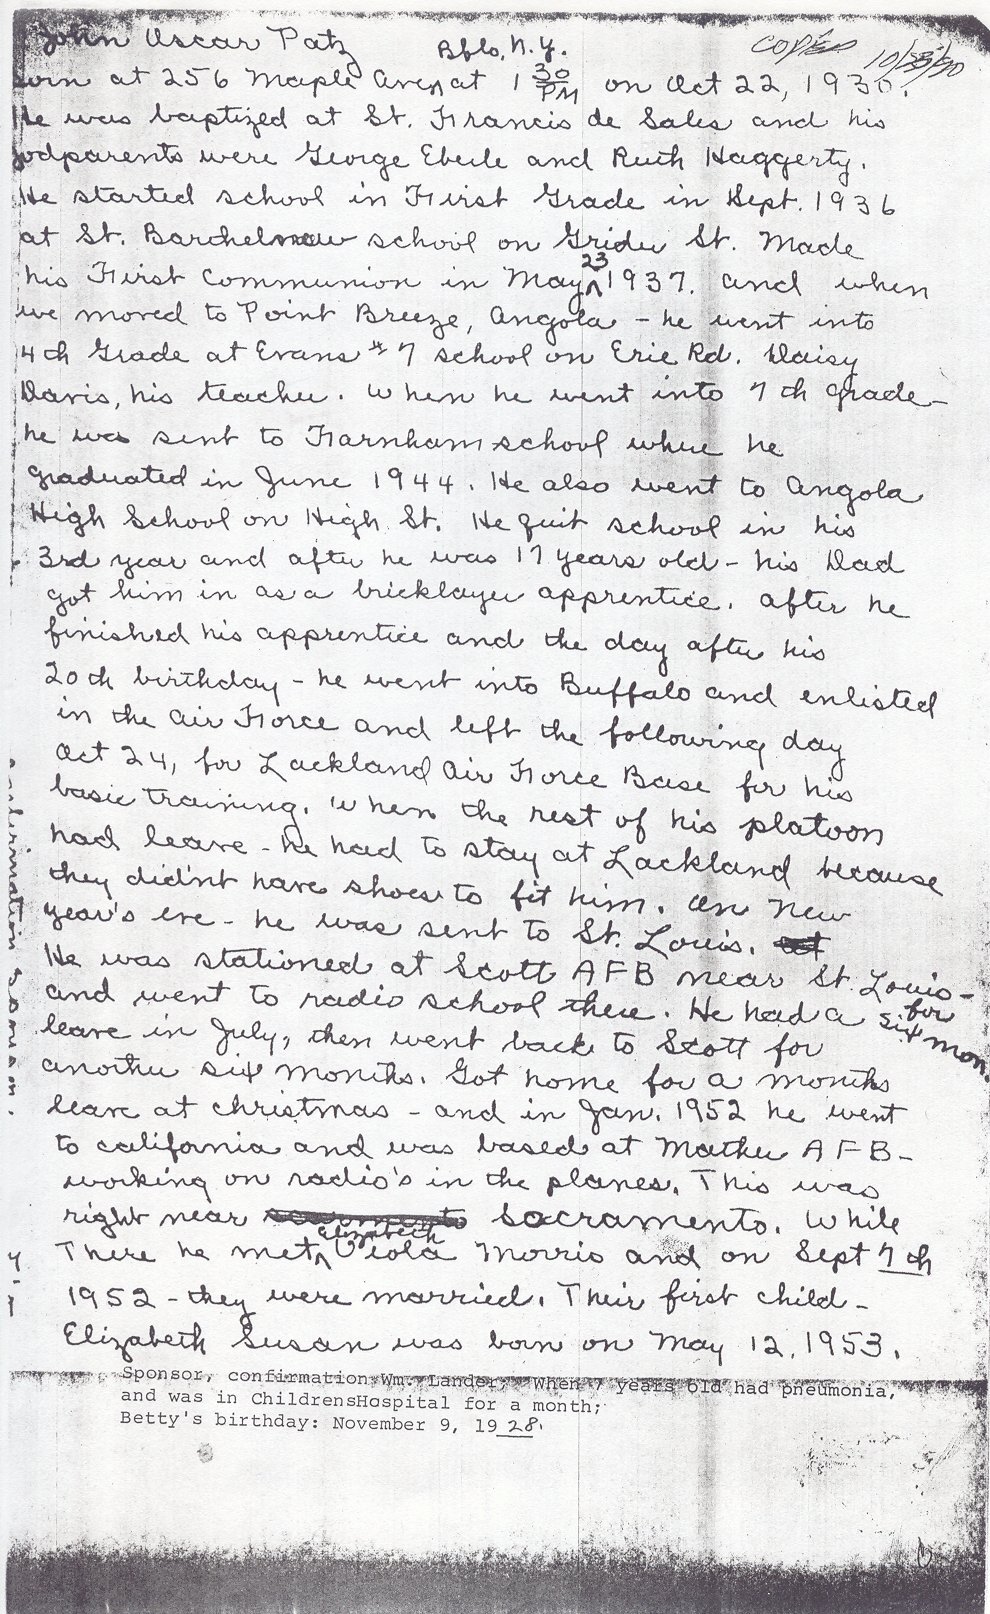 John Oscar Patz
Bflo, N.Y.
COPIED 10/23/90
Born at 256 Maple Ave, at 1 30 PM on Oct 22, 1930.
He was baptized at St. Francis de Sales and his
godparents were George Eberle and Ruth Haggerty.
He started school in First Grade in Sept. 1936
at St. school on Grider St. Made
his First Communion in May 23 1937. and when
we moved to Point Breeze, Angola - he went into
4th Grade at Evans #7 school on Erie Rd. Daisy
Davis, his teacher. When he went into 7th grade -
he was sent to Farnham school where he
graduated in June 1944. He also went to Angola
High School on High St. He quit school in his
3rd year and after he was 17 years old - his Dad
got him in as a bricklayer apprentice. After he
finished his apprentice and the day after his
20th birthday - he went into Buffalo and enlisted
in the Air Force and left the following day
Oct 24, for Lackland Air Force Base for his
basic training. When the rest of his platoon
had leave - he had to stay at Lackland because
they did'nt have shoes to fit him. On New
year's eve - he was sent to St. Louis.
He was stationed at Scott AFB near St. Louis -
and went to radio school there for six mon. He had a
leave in July, then went back to Scott for
another six months. Got home for a months
leave at Christmas - and in Jan. 1952 he went
to California and was based at Mather AFB -
working on radio's in the planes. This was
right near Sacramento. While
There he met Elizabeth Viola Morris and on Sept 7th
1952 - they were married. Their first child -
Elizabeth Susan was born on May 12, 1953.
Sponsor, confirmation Wm. Lander, When 7 years old had pneumonia,
and was in ChildrensHospital for a month;
Betty's birthday: November 9, 19 28.